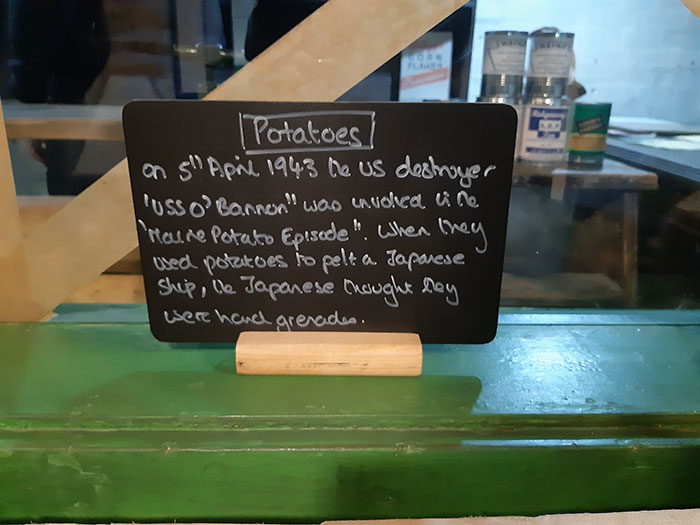 Potatoes
on 5th April 1943 the US destroyer
'USS O' Bannon" was involved in the
'Maine Potato Episode". When they
used potatoes to pelt a Japanese
Ship, the Japanese thought they
were hand grenades.
CORN
FLAKES